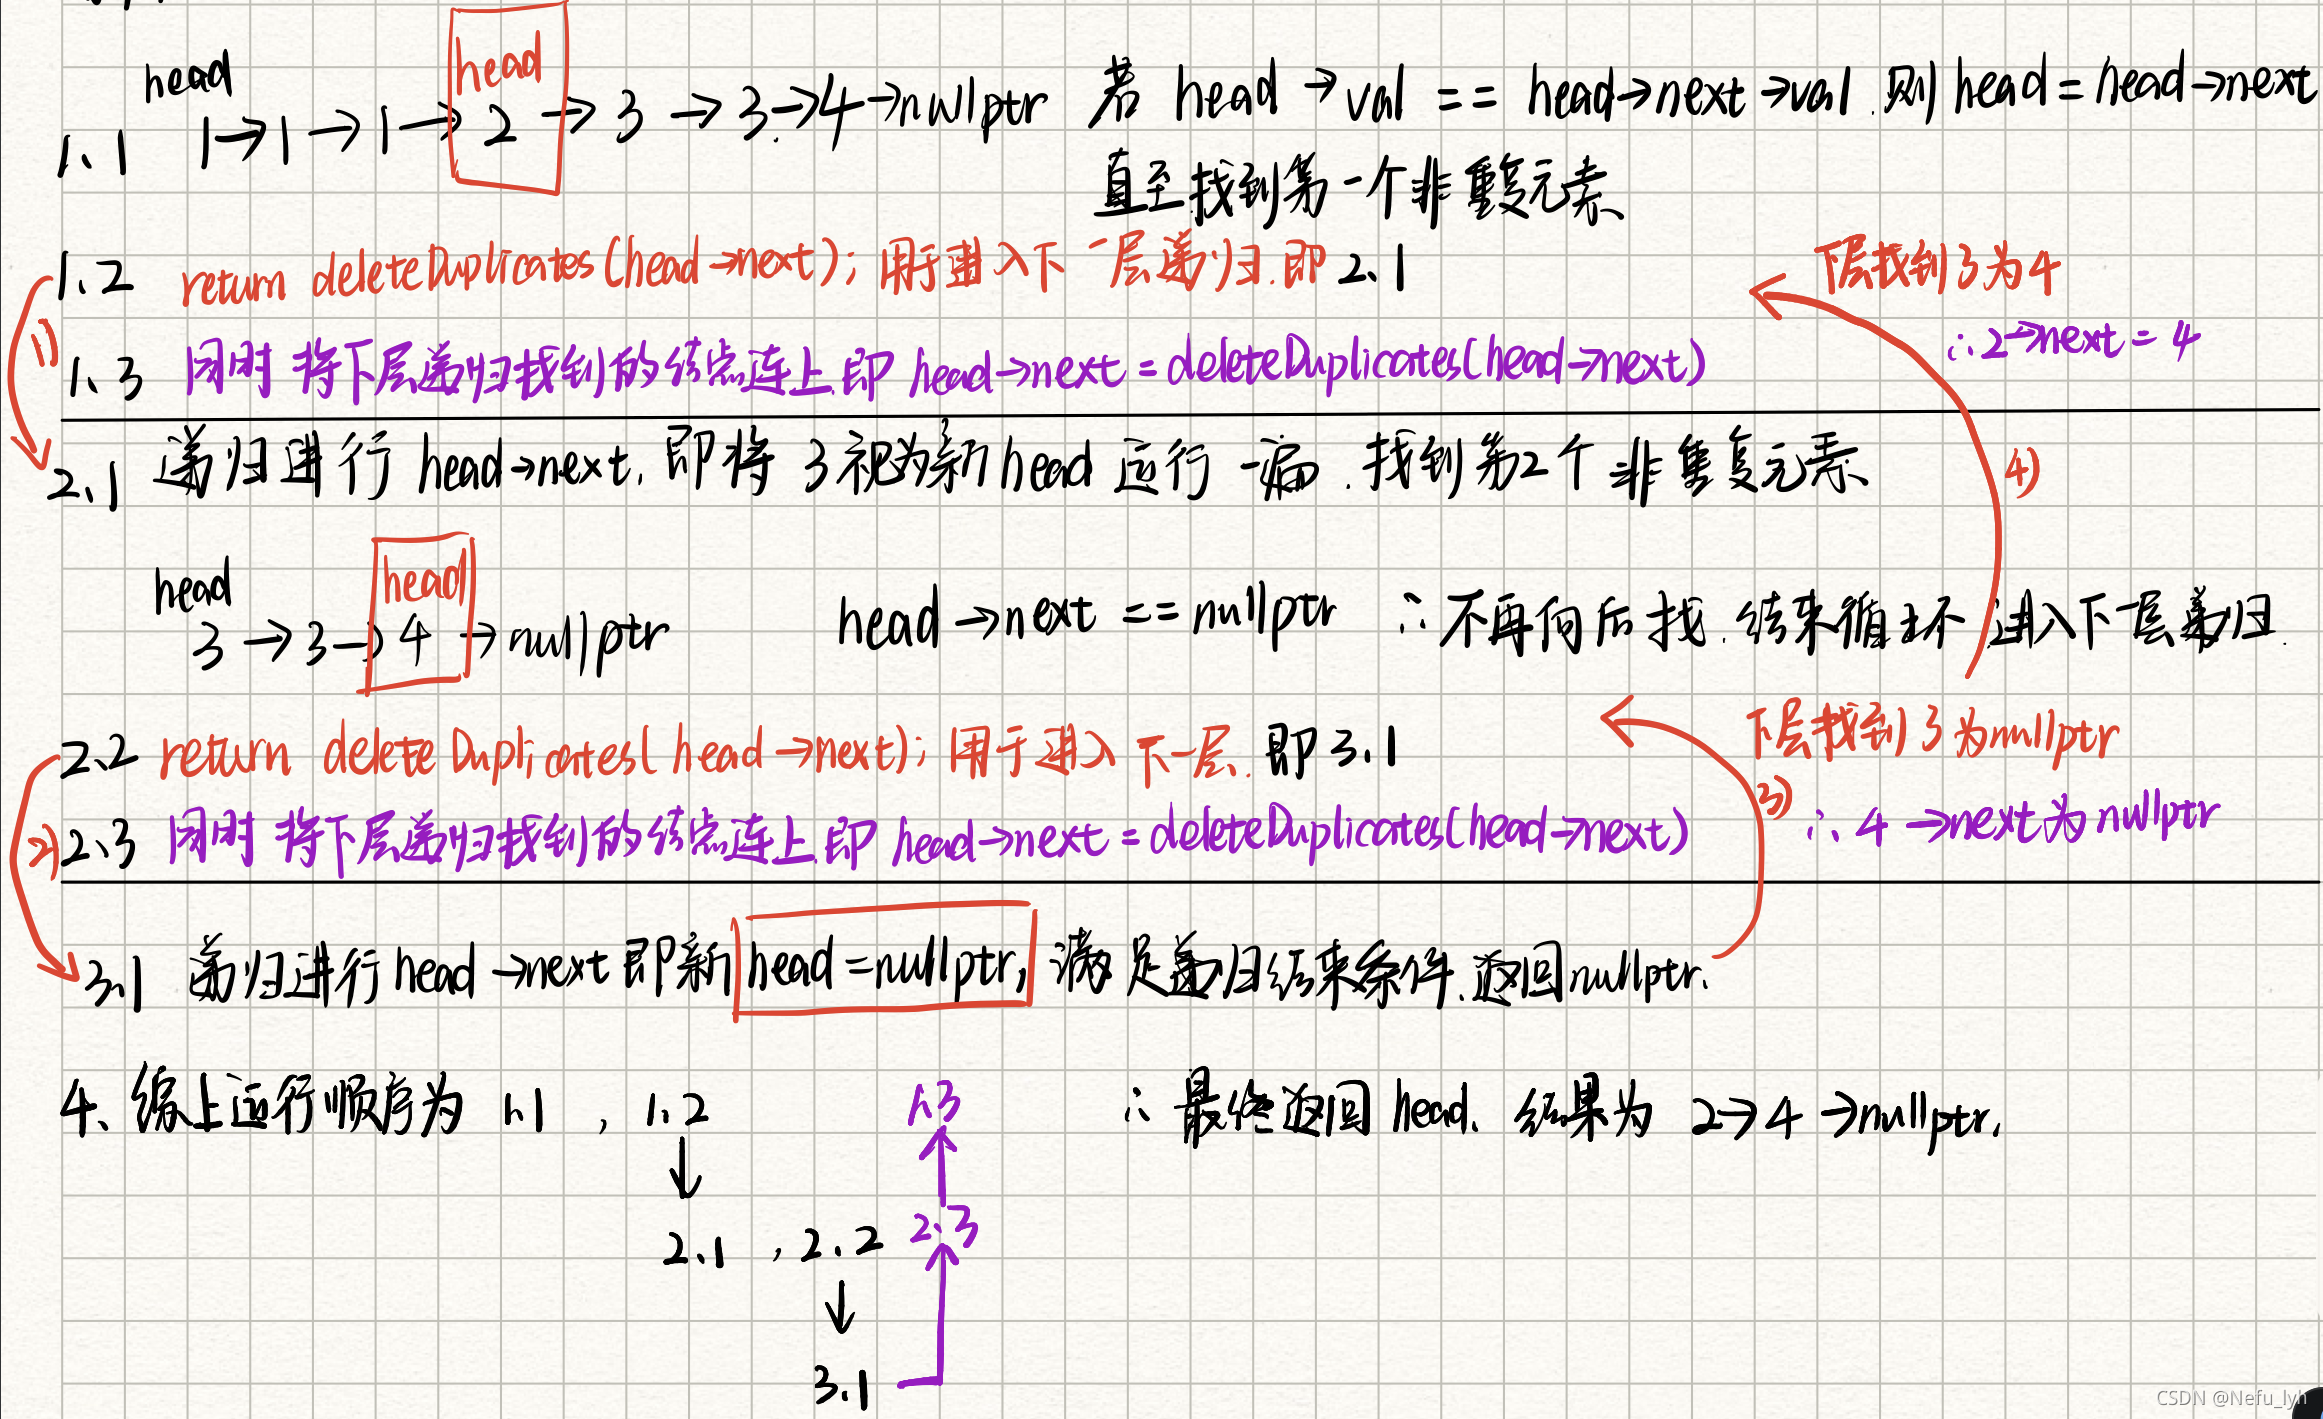 head head
1、1 1→1→1→2→3→3→4→nullptr 若 head→val == head→next→val 则 head = head→next
直至找到第一个非重复元素、
1、2 return deleteDuplicates(head→next); 用于进入下一层递归.即 2、1 下层找到了为4
1) 1、3 同时将下层递归找到的结点连上.即 head→next = deleteDuplicates(head→next) ∴2→next = 4
2、1 递归进行 head→next, 即将 3 视为新head 运行一遍. 找到第2个非重复元素、 4)
head head
3→3→4→nullptr head→next == nullptr ∴不再向后找.结束循环 进入下一层递归.
2、2 return deleteDuplicates(head→next); 用于进入下一层. 即 3、1 下层找到了为nullptr
2) 2、3 同时将下层递归找到的结点连上.即 head→next = deleteDuplicates(head→next) 3) ∴4→next为nullptr
3、1 递归进行head→next 即新 head = nullptr, 满足递归结束条件.返回nullptr.
4、综上运行顺序为 1、1 , 1、2 1、3 ∴最终返回head. 结果为 2→4→nullptr.
2、1 , 2、2 2、3
3、1
CSDN @Nefu_lyh